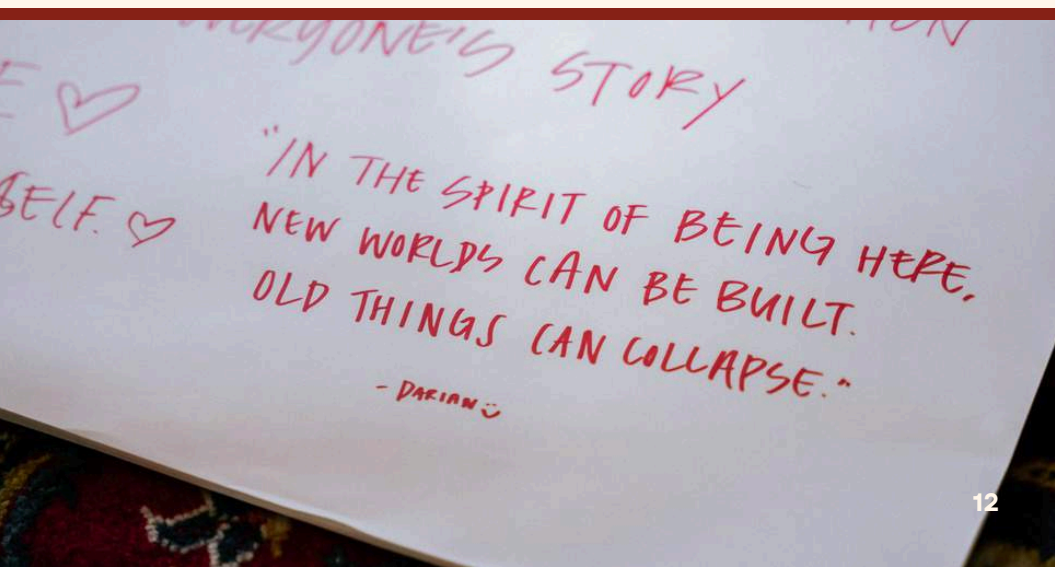 EVERYONE'S STORY
SELF. ♡
"IN THE SPIRIT OF BEING HERE,
NEW WORLDS CAN BE BUILT.
OLD THINGS CAN COLLAPSE."
- DARIAN
12